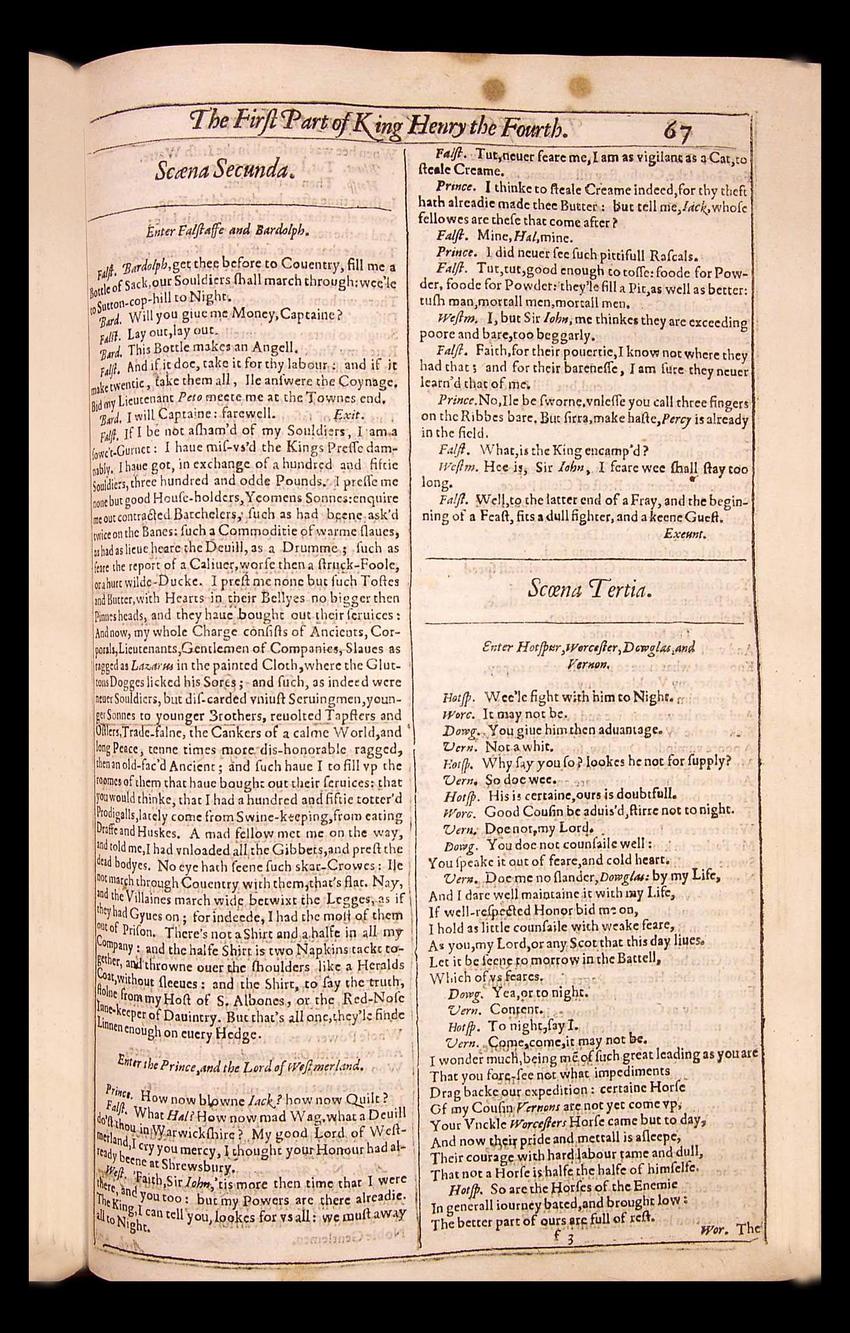 The First Part of King Henry the Fourth. 67
Scæna Secunda.
Enter Falstaffe and Bardolph.
Falst. Bardolph, get thee before to Couentry, fill me a
Bottle of Sack, our Souldiers shall march through: wee'le
to Sutton-cop-hill to Night.
Bard. Will you giue me Money, Captaine?
Falst. Lay out, lay out.
Bard. This Bottle makes an Angell.
Falst. And if it doe, take it for thy labour: and if it
make twentie, take them all, Ile answere the Coynage.
Bid my Lieutenant Peto meete me at the Townes end.
Bard. I will Captaine: farewell. Exit.
Falst. If I be not asham'd of my Souldiers, I am a
sowc't-Gurnet: I haue mis-vs'd the Kings Presse dam-
nably. I haue got, in exchange of a hundred and fiftie
Souldiers, three hundred and odde Pounds. I presse me
none but good House-holders, Yeomens Sonnes: enquire
me out contracted Batchelers, such as had beene ask'd
twice on the Banes: such a Commoditie of warme slaues,
as had as lieue heare the Deuill, as a Drumme; such as
feare the report of a Caliuer, worse then a struck-Foole,
or a hurt wilde-Ducke. I prest me none but such Tostes
and Butter, with Hearts in their Bellyes no bigger then
Pinnes heads, and they haue bought out their seruices:
And now, my whole Charge consists of Ancients, Cor-
porals, Lieutenants, Gentlemen of Companies, Slaues as
ragged as Lazarus in the painted Cloth, where the Glut-
tons Dogges licked his Sores; and such, as indeed were
neuer Souldiers, but dis-carded vniust Seruingmen, youn-
ger Sonnes to younger Brothers, reuolted Tapsters and
Ostlers, Trade-falne, the Cankers of a calme World, and
long Peace, tenne times more dis-honorable ragged,
then an old-fac'd Ancient; and such haue I to fill vp the
roomes of them that haue bought out their seruices: that
you would thinke, that I had a hundred and fiftie totter'd
Prodigalls, lately come from Swine-keeping, from eating
Draffe and Huskes. A mad fellow met me on the way,
and told me, I had vnloaded all the Gibbets, and prest the
dead bodyes. No eye hath seene such skar-Crowes: Ile
not march through Couentry with them, that's flat. Nay,
and the Villaines march wide betwixt the Legges, as if
they had Gyues on; for indeede, I had the most of them
out of Prison. There's not a Shirt and a halfe in all my
Company: and the halfe Shirt is two Napkins tackt to-
gether, and throwne ouer the shoulders like a Heralds
Coat, without sleeues: and the Shirt, to say the truth,
stolne from my Host of S. Albones, or the Red-Nose
Inne-keeper of Dauintry. But that's all one, they'le finde
Linnen enough on euery Hedge.
Enter the Prince, and the Lord of Westmerland.
Prince. How now blowne Iack? how now Quilt?
Falst. What Hal? How now mad Wag, what a Deuill
do'st thou in Warwickshire? My good Lord of West-
merland, I cry you mercy, I thought your Honour had al-
ready beene at Shrewsbury.
West. 'Faith, Sir Iohn, 'tis more then time that I were
there, and you too: but my Powers are there alreadie.
The King, I can tell you, lookes for vs all: we must away
all to Night.
Falst. Tut, neuer feare me, I am as vigilant as a Cat, to
steale Creame.
Prince. I thinke to steale Creame indeed, for thy theft
hath alreadie made thee Butter: but tell me, Iack, whose
fellowes are these that come after?
Falst. Mine, Hal, mine.
Prince. I did neuer see such pittifull Rascals.
Falst. Tut, tut, good enough to tosse: foode for Pow-
der, foode for Powder: they'le fill a Pit, as well as better:
tush man, mortall men, mortall men.
Westm. I, but Sir Iohn, me thinkes they are exceeding
poore and bare, too beggarly.
Falst. Faith, for their pouertie, I know not where they
had that; and for their barenesse, I am sure they neuer
learn'd that of me.
Prince. No, Ile be sworne, vnlesse you call three fingers
on the Ribbes bare. But sirra, make haste, Percy is already
in the field.
Falst. What, is the King encamp'd?
Westm. Hee is, Sir Iohn, I feare wee shall stay too
long.
Falst. Well, to the latter end of a Fray, and the begin-
ning of a Feast, fits a dull fighter, and a keene Guest.
Exeunt.
Scœna Tertia.
Enter Hotspur, Worcester, Dowglas, and
Vernon.
Hotsp. Wee'le fight with him to Night.
Worc. It may not be.
Dowg. You giue him then aduantage.
Vern. Not a whit.
Hotsp. Why say you so? lookes he not for supply?
Vern. So doe wee.
Hotsp. His is certaine, ours is doubtfull.
Worc. Good Cousin be aduis'd, stirre not to night.
Vern. Doe not, my Lord.
Dowg. You doe not counsaile well:
You speake it out of feare, and cold heart.
Vern. Doe me no slander, Dowglas: by my Life,
And I dare well maintaine it with my Life,
If well-respected Honor bid me on,
I hold as little counsaile with weake feare,
As you, my Lord, or any Scot that this day liues.
Let it be seene to morrow in the Battell,
Which of vs feares.
Dowg. Yea, or to night.
Vern. Content.
Hotsp. To night, say I.
Vern. Come, come, it may not be.
I wonder much, being me of such great leading as you are
That you fore-see not what impediments
Drag backe our expedition: certaine Horse
Of my Cousin Vernons are not yet come vp,
Your Vnckle Worcesters Horse came but to day,
And now their pride and mettall is asleepe,
Their courage with hard labour tame and dull,
That not a Horse is halfe the halfe of himselfe.
Hotsp. So are the Horses of the Enemie
In generall iourney bated, and brought low:
The better part of ours are full of rest.
f 3 Wor. The